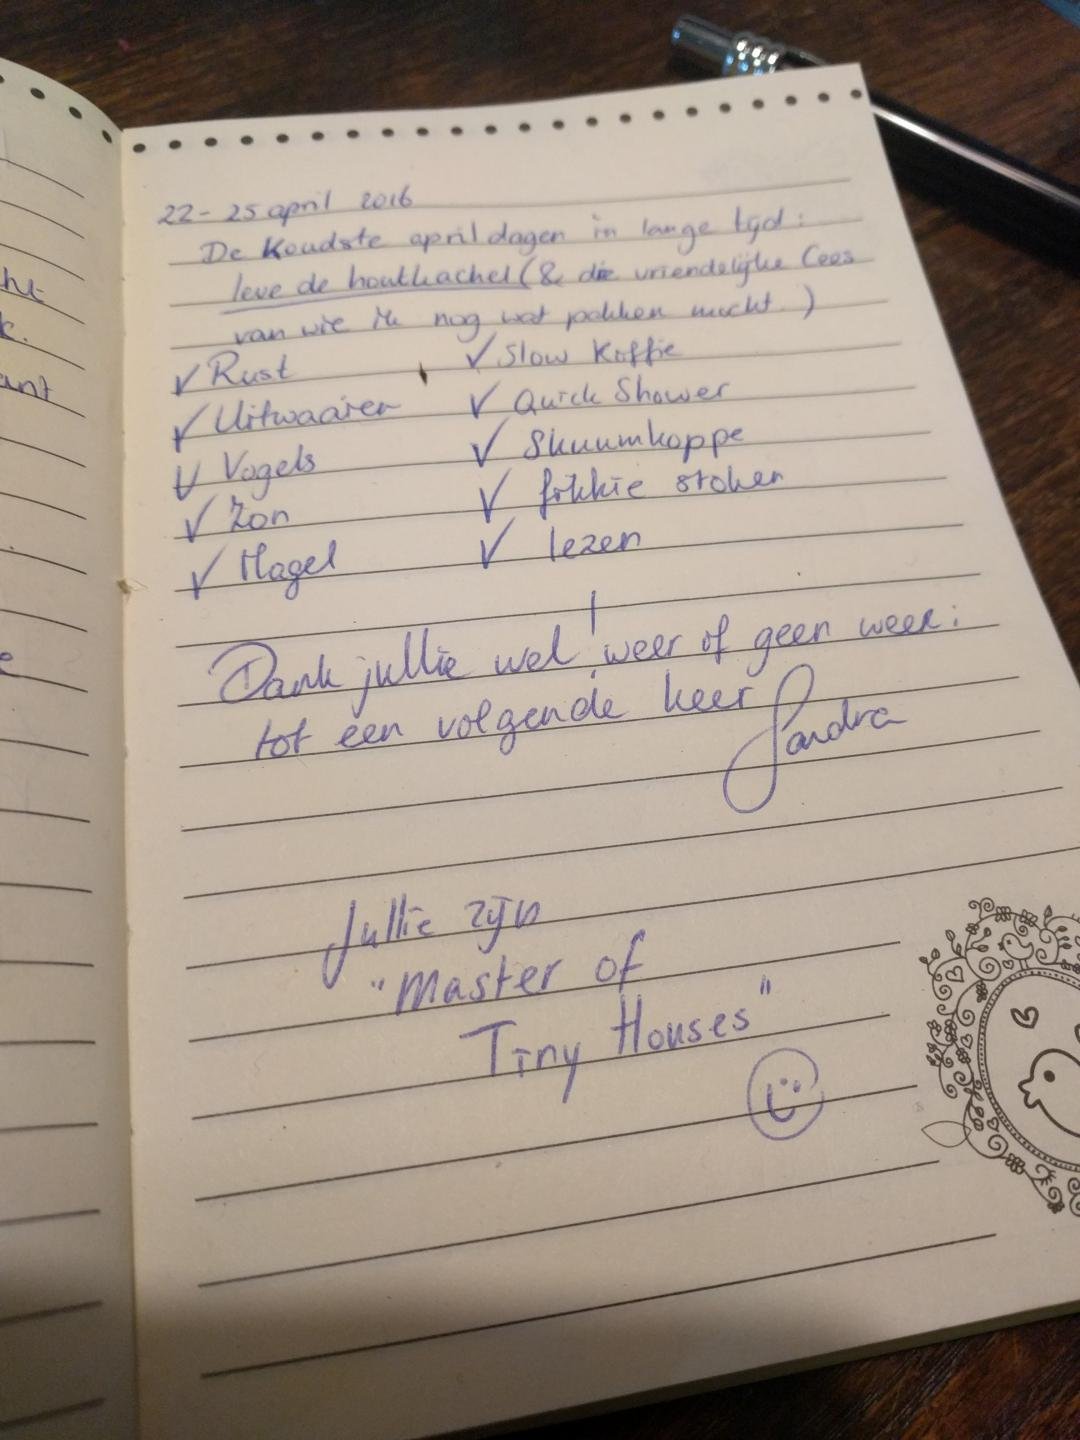 ht
k.
ant
e
22 - 25 april 2016
De Koudste april dagen in lange tijd:
leve de houtkachel (& die vriendelijke Cees
van wie ik nog wat pakken mucht.)
✓ Rust ✓ Slow Koffie
✓ Uitwaaien ✓ Quick Shower
✓ Vogels ✓ Skuumkoppe
✓ Zon ✓ fikkie stoken
✓ Hagel ✓ lezen
Dank jullie wel! weer of geen weer:
tot een volgende keer Sandra
Jullie zijn
"Master of
Tiny Houses"